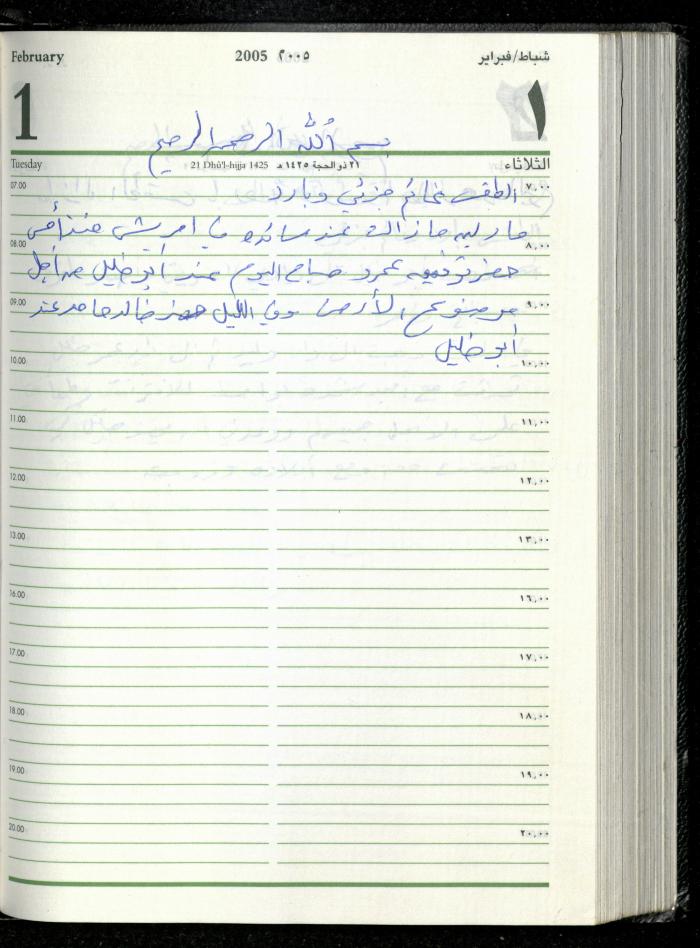 February 2005 ٢٠٠٥ شباط/فبراير
1 ١
بسم الله الرحمن الرحيم
Tuesday 21 Dhû'l-hijja 1425 ٢١ ذو الحجة ١٤٢٥ هـ الثلاثاء
07.00 الطقس غائم جزئي وبارد ٧,٠٠
مازالت عند منذ أمس
08.00 ٨,٠٠
حضر توفيق صباح اليوم عند أبو خليل من أجل
09.00 موضوع الأرض وفي الليل حضر خالد حامد عند ٩,٠٠
أبو خليل
10.00 ١٠,٠٠
11.00 ١١,٠٠
12.00 ١٢,٠٠
13.00 ١٣,٠٠
16.00 ١٦,٠٠
17.00 ١٧,٠٠
18.00 ١٨,٠٠
19.00 ١٩,٠٠
20.00 ٢٠,٠٠